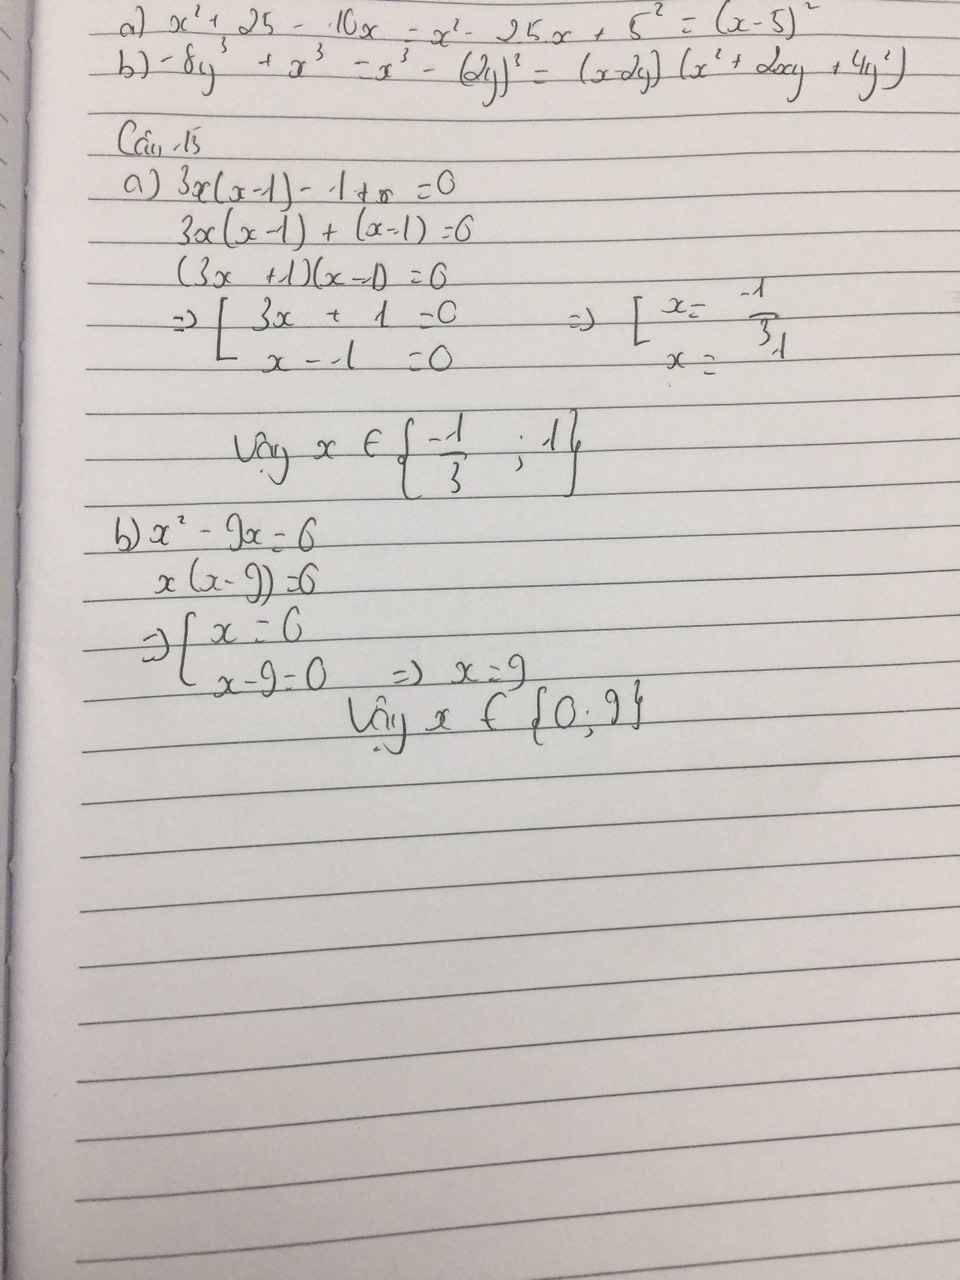 a) x² + 25 - 10x = x² - 2.5.x + 5² = (x-5)²
b) -8y³ + x³ = x³ - (2y)³ = (x-2y) (x² + 2xy + 4y²)
Câu 15
a) 3x(x-1) - 1 + x = 0
3x(x-1) + (x-1) = 0
(3x + 1)(x-1) = 0
=> [ 3x + 1 = 0 => [ x = -1/3
x - 1 = 0 x = 1
Vậy x ∈ {-1/3 ; 1}
b) x² - 9x = 0
x(x-9) = 0
=> [ x = 0
x-9=0 => x=9
Vậy x ∈ {0; 9}